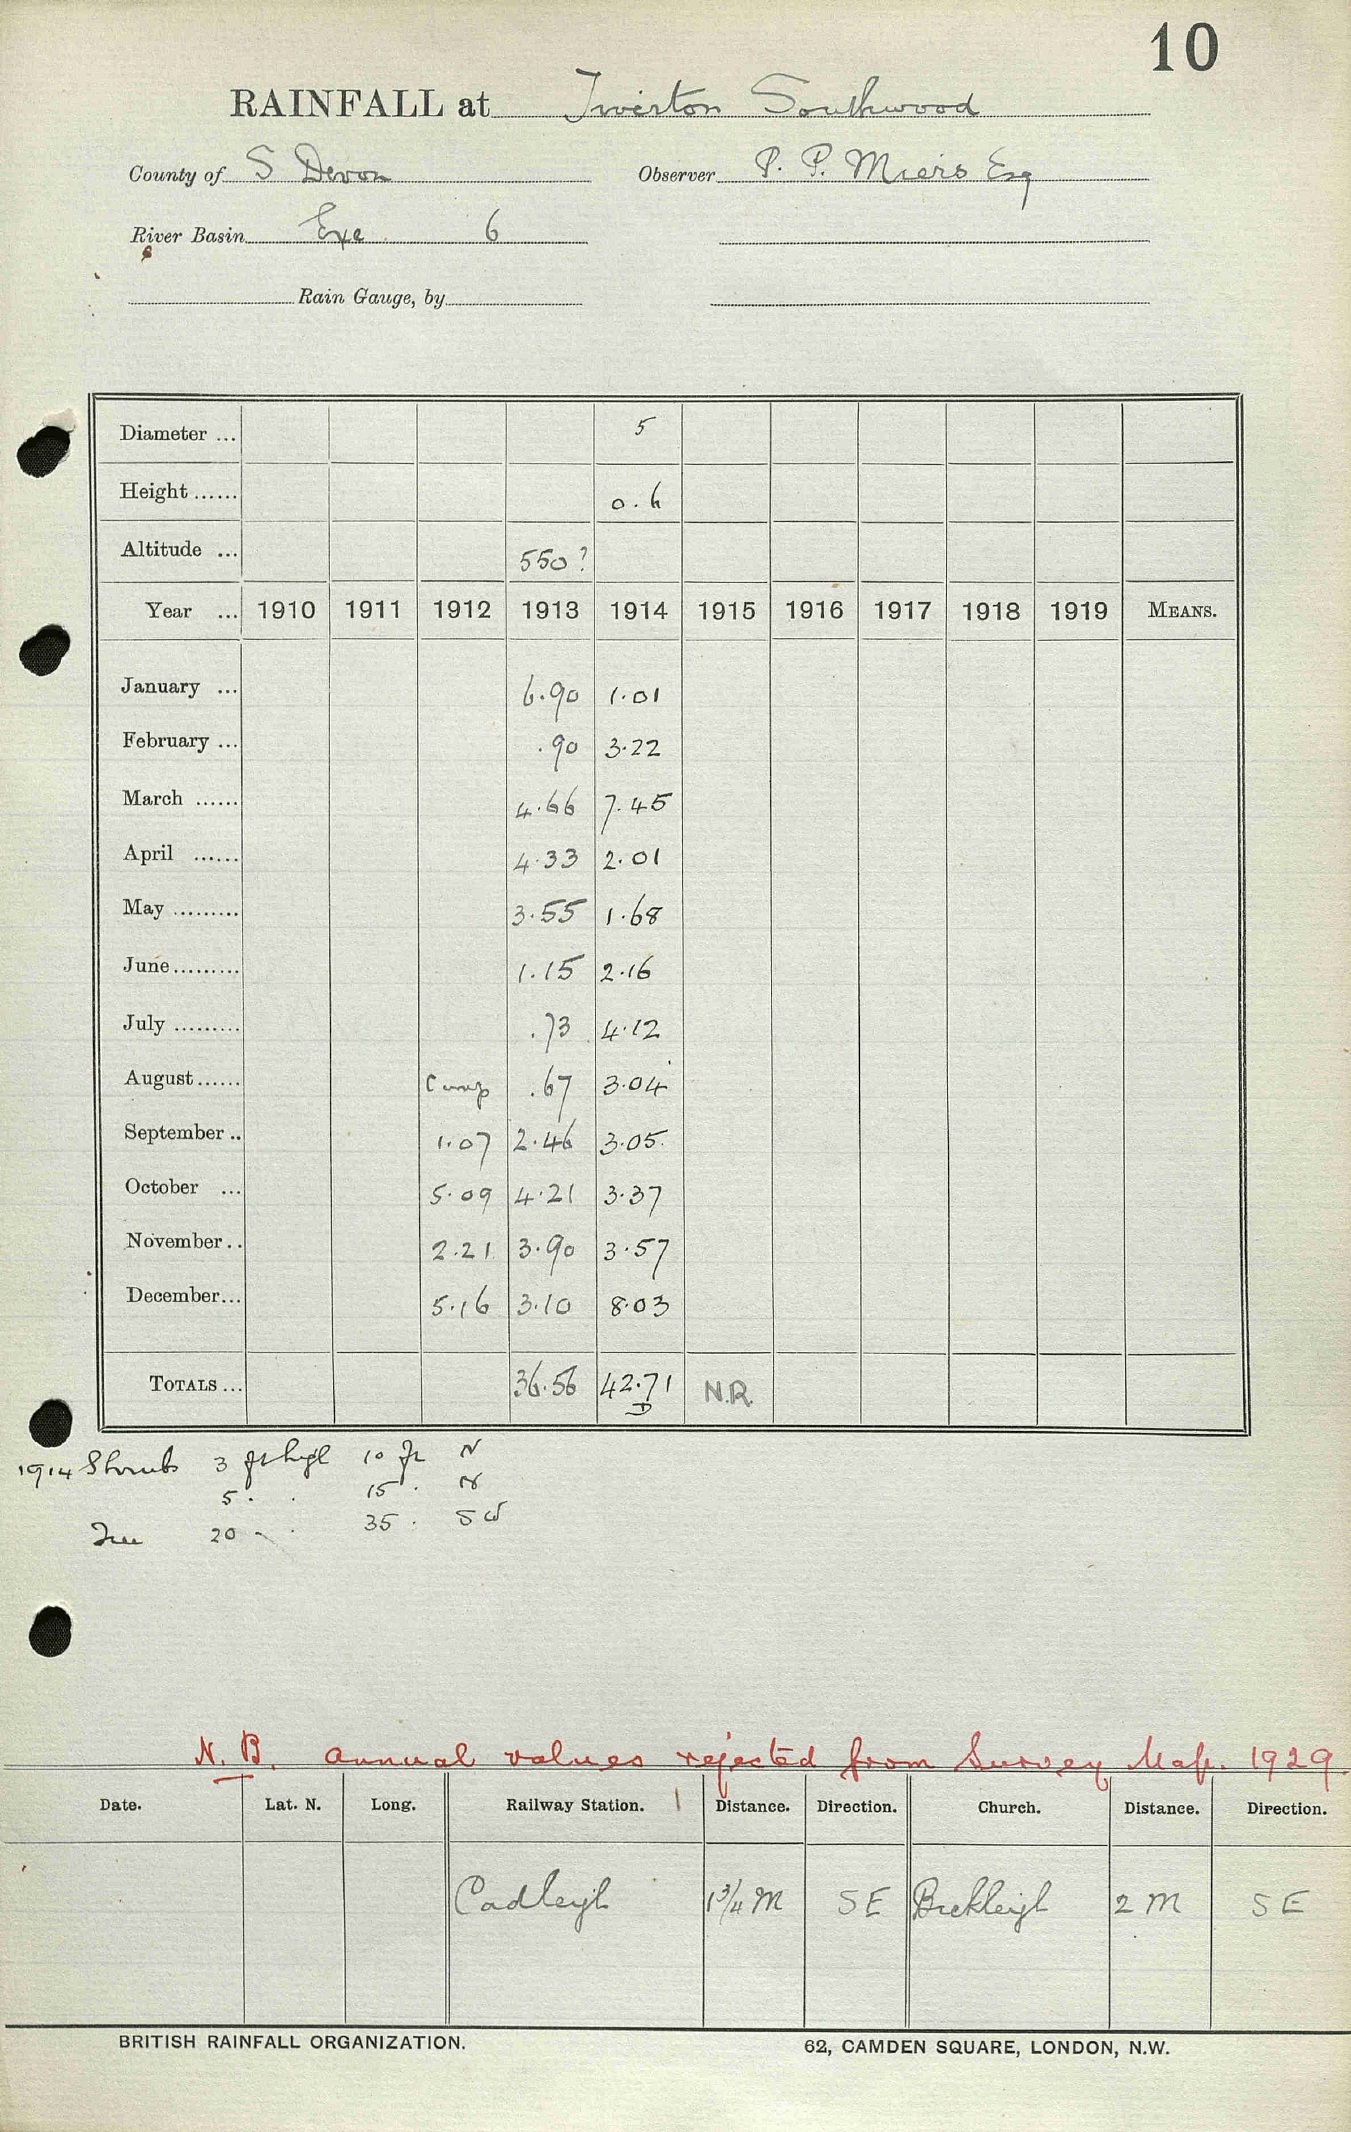 10
RAINFALL at Tiverton Southwood
County of S Devon Observer P. P. Miers Esq
River Basin Exe 6
Rain Gauge, by
Diameter ... 5
Height ...... 0.6
Altitude ... 550?
Year ... 1910 1911 1912 1913 1914 1915 1916 1917 1918 1919 MEANS.
January ... 6.90 1.01
February ... .90 3.22
March ...... 4.66 7.45
April ...... 4.33 2.01
May ......... 3.55 1.68
June ......... 1.15 2.16
July ......... .73 4.12
August ...... .67 3.04
September .. 1.07 2.46 3.05
October ... 5.09 4.21 3.37
November .. 2.21 3.90 3.57
December ... 5.16 3.10 8.03
TOTALS ... 36.56 42.71 N.R.
D
1914 Shrubs 3 ft high 10 ft N
5 . . 15 . N
Tree 20 . . 35 . SW
N.B. Annual values rejected from Survey Map. 1929.
Date. Lat. N. Long. Railway Station. Distance. Direction. Church. Distance. Direction.
Cadleigh 1 3/4 M SE Bickleigh 2 M SE
BRITISH RAINFALL ORGANIZATION. 62, CAMDEN SQUARE, LONDON, N.W.